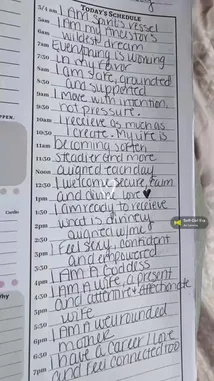 TODAY'S SCHEDULE
5/4 am I AM Spirit's vessel
5am I AM my Ancestor's
6am wildest dream
7am Everything is working
7:30 in my favor
8am I am safe, grounded
8:30 and supported
9am I move with intention,
9:30 not pressure.
10am I receive as much as
10:30 I create. My life is
11am becoming softer
11:30 steadier and more
Noon aligned each day
12:30 I welcome secure, calm
1pm and divine love
1:30 I am ready to receive
2pm what is divinely
2:30 aligned w/ me
3pm I feel sexy, confident
and empowered
3:30 I AM A Goddess
4pm I AM A wife, a present
4:30 and attentive + Affectionate
5pm wife
5:30 I AM A well rounded
6pm mother
6:30 I have a career I love
7pm and feel connected too
PPEN.
Cardio